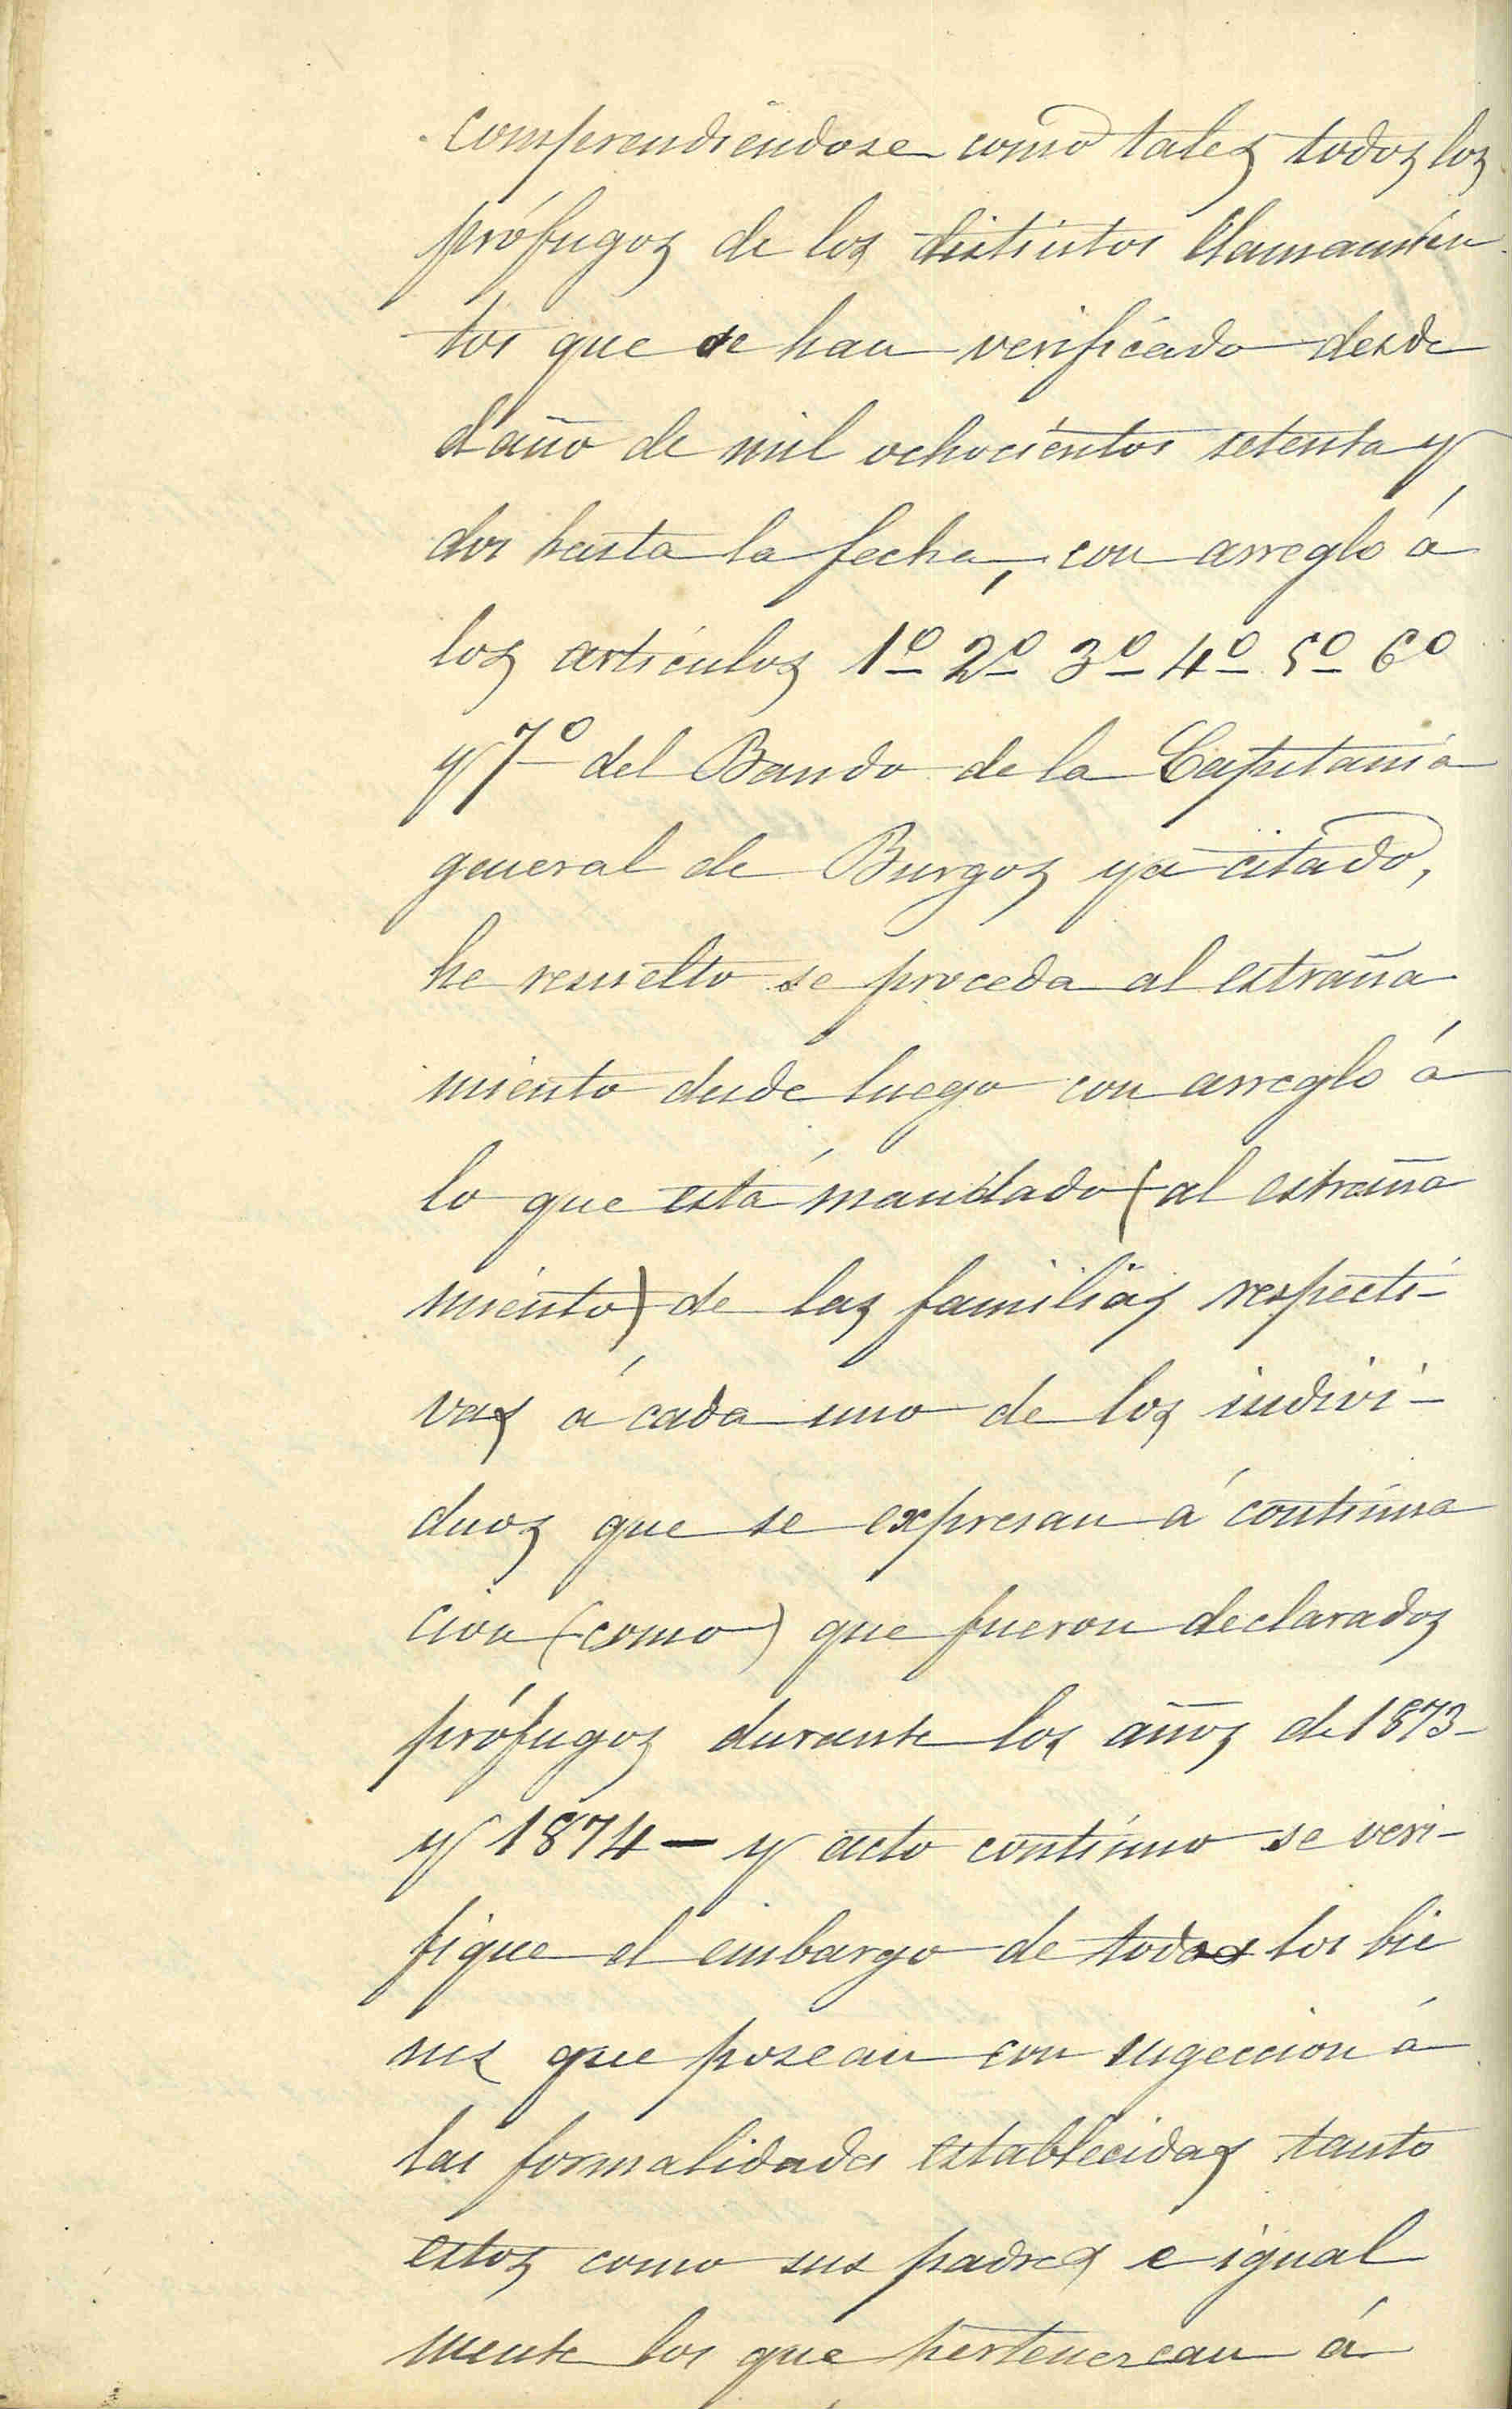 comprendiéndose como tales todos los
prófugos de los distintos llamamien
tos que se han verificado desde
el año de mil ochocientos setenta y
dos hasta la fecha, con arreglo á
los artículos 1º 2º 3º 4º 5º 6º
y 7º del Bando de la Capitanía
general de Burgos ya citado,
he resuelto se proceda al estraña
miento desde luego con arreglo á
lo que está mandado (al estraña
miento) de las familias respecti-
vas á cada uno de los indivi-
duos que se expresan á continua
cion (como) que fueron declarados
prófugos durante los años de 1873-
y 1874 - y acto contínuo se veri-
fique el embargo de todos los bie
nes que posean con sugeccion á
las formalidades establecidas tanto
estos como sus padres e igual
mente los que pertenezcan á